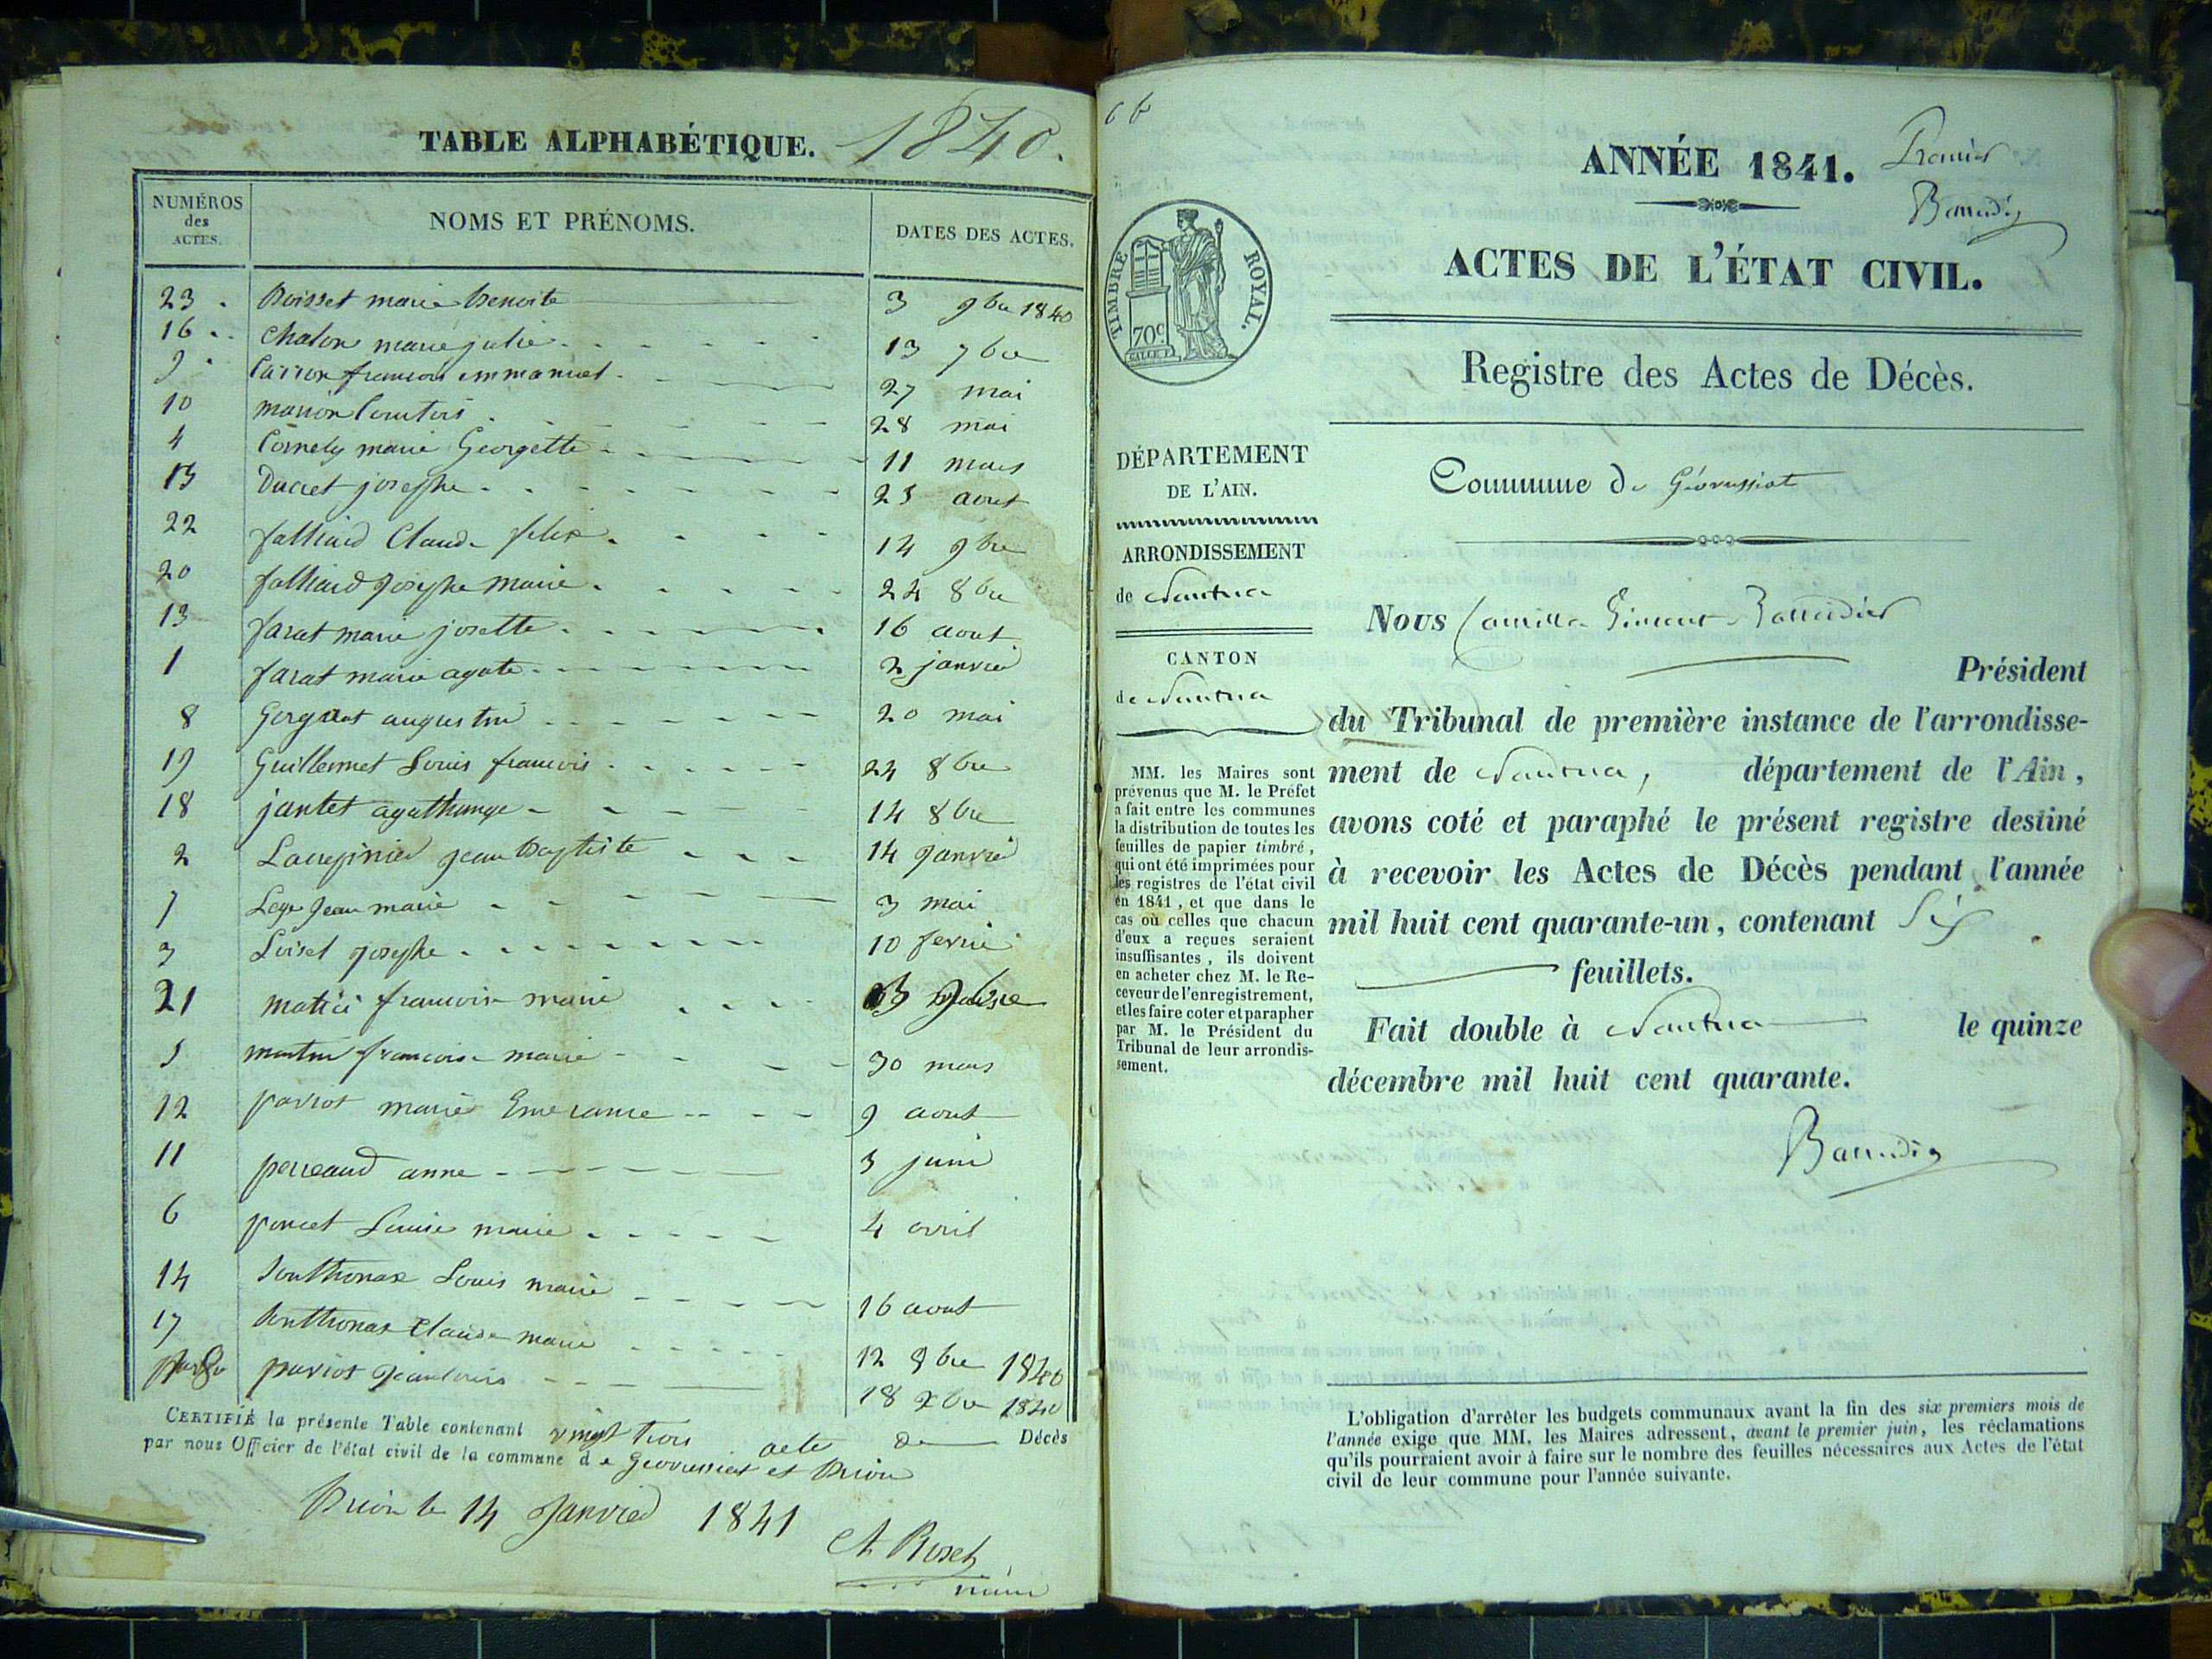 TABLE ALPHABÉTIQUE. 1840.
NUMÉROS des ACTES. NOMS ET PRÉNOMS. DATES DES ACTES.
23 Boisset marie Benoite 3 9bre 1840
16 Chalon marie julie 13 7bre
9 Carron francois emmanuel 27 mai
10 28 mai
4 Cornely marie Georgette 11 mars
15 Ducret josephe 25 aout
22 falliard Claude felix 14 9bre
20 falliard josephe marie 24 8bre
13 farat marie josette 16 aout
1 farat marie agate 2 janvier
8 augustin 20 mai
19 Guillermet Louis francois 24 8bre
18 jantet agathange 14 8bre
2 Lacrepinier jean Baptiste 14 janvier
7 Lege jean marie 3 mai
3 Loiset josephe 10 fevrier
21 francoise marie
5 martin francoise marie 30 mars
12 pariot marie Emerance 9 aout
11 perreaud anne 3 juin
6 poncet Louise marie 4 avril
14 Sonthonax Louis marie 16 aout
17 Sonthonax Claude marie 12 8bre 1840
pariot jean louis 18 1840
CERTIFIÉ la présente Table contenant vingt trois acte de Décès
par nous Officier de l'état civil de la commune de Geovressiat et Brion
Brion le 14 Janvier 1841
Roset
maire
ANNÉE 1841. Premier
ACTES DE L'ÉTAT CIVIL.
TIMBRE ROYAL.
70c
Registre des Actes de Décès.
DÉPARTEMENT
DE L'AIN.
ARRONDISSEMENT
de Nantua
CANTON
de Nantua
MM. les Maires sont
prévenus que M. le Préfet
a fait entre les communes
la distribution de toutes les
feuilles de papier timbré,
qui ont été imprimées pour
les registres de l'état civil
en 1841, et que dans le
cas où celles que chacun
d'eux a reçues seraient
insuffisantes, ils doivent
en acheter chez M. le Re-
ceveur de l'enregistrement,
et les faire coter et parapher
par M. le Président du
Tribunal de leur arrondis-
sement.
Commune de Géovressiat
Nous Camille Vincent
Président
du Tribunal de première instance de l'arrondisse-
ment de Nantua, département de l'Ain,
avons coté et paraphé le présent registre destiné
à recevoir les Actes de Décès pendant l'année
mil huit cent quarante-un, contenant Six
feuillets.
Fait double à Nantua le quinze
décembre mil huit cent quarante.
L'obligation d'arrêter les budgets communaux avant la fin des six premiers mois de
l'année exige que MM. les Maires adressent, avant le premier juin, les réclamations
qu'ils pourraient avoir à faire sur le nombre des feuilles nécessaires aux Actes de l'état
civil de leur commune pour l'année suivante.